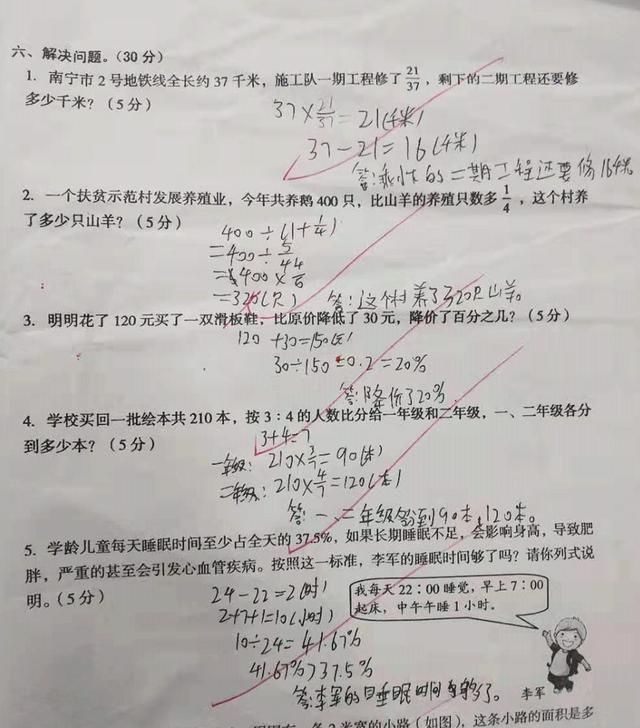 六、解决问题。(30 分)
1. 南宁市 2 号地铁线全长约 37 千米，施工队一期工程修了 21/37，剩下的二期工程还要修
多少千米？(5 分)
37×21/37=21(千米)
37-21=16(千米)
答:剩下的二期工程还要修16千米
2. 一个扶贫示范村发展养殖业，今年共养鹅 400 只，比山羊的养殖只数多 1/4，这个村养
了多少只山羊？(5 分)
400÷(1+1/4)
=400÷5/4
=320(只)
答:这个村养了320只山羊。
3. 明明花了 120 元买了一双滑板鞋，比原价降低了 30 元，降价了百分之几？(5 分)
120+30=150(元)
30÷150=0.2=20%
答:降价了20%
4. 学校买回一批绘本共 210 本，按 3∶4 的人数比分给一年级和二年级，一、二年级各分
到多少本？(5 分)
3+4=7
一年级: 210×3/7=90(本)
二年级: 210×4/7=120(本)
答:一、二年级各分到90本,120本。
5. 学龄儿童每天睡眠时间至少占全天的 37.5%，如果长期睡眠不足，会影响身高，导致肥
胖，严重的甚至会引发心血管疾病。按照这一标准，李军的睡眠时间够了吗？请你列式说
明。(5 分)
我每天 22∶00 睡觉，早上 7∶00
起床，中午午睡 1 小时。
24-22=2(时)
2+7+1=10(小时)
10÷24=41.67%
41.67%>37.5%
答:李军的睡眠时间够了。
李军
条 2 米宽的小路（如图），这条小路的面积是多